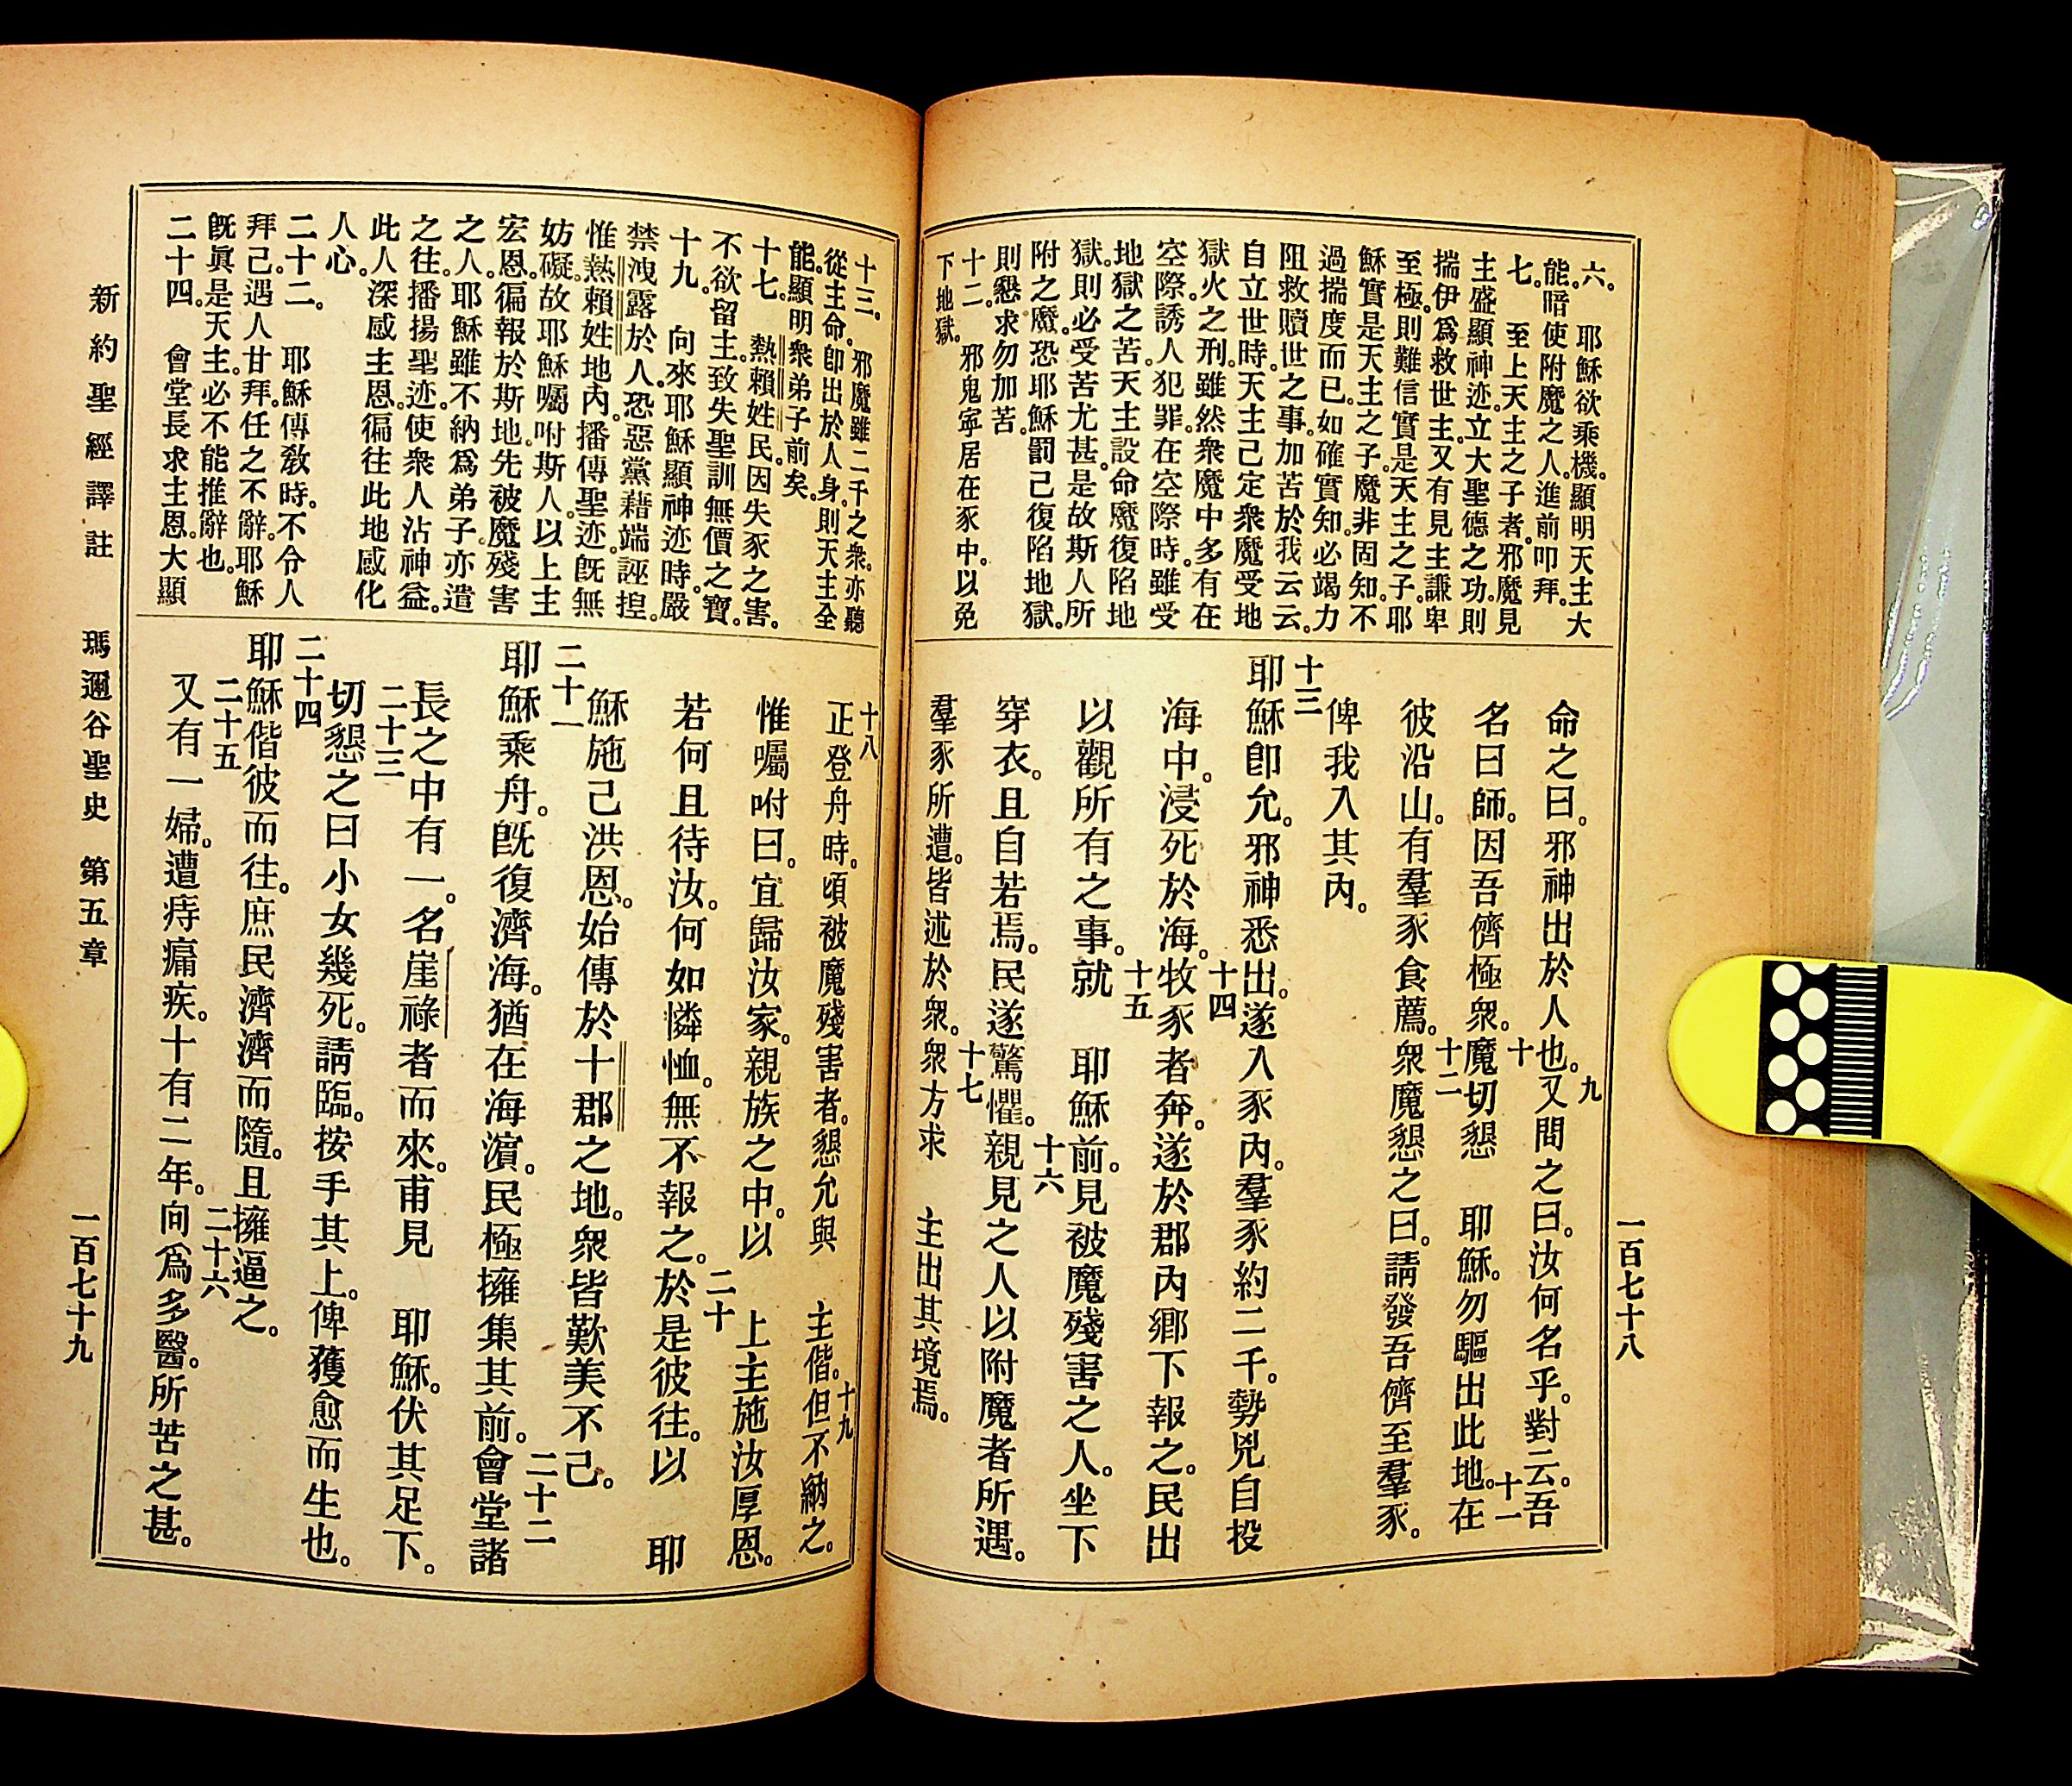 六。　耶穌欲乘機。顯明天主大
能。暗使附魔之人。進前叩拜。
七。　至上天主之子者。邪魔見
主盛顯神迹。立大聖德之功。則
揣伊爲救世主。又有見主謙卑
至極。則難信實是天主之子。耶
穌實是天主之子。魔非固知。不
過揣度而已。如確實知。必竭力
阻救贖世之事。加苦於我云云。
自立世時。天主已定衆魔受地
獄火之刑。雖然衆魔中多有在
空際誘人犯罪。在空際時。雖受
地獄之苦。天主設命魔復陷地
獄。則必受苦尤甚。是故斯人所
附之魔。恐耶穌罰己復陷地獄。
則懇求勿加苦。
十二。　邪鬼寧居在豕中。以免
下地獄。
命之曰。邪神出於人也。九又問之曰。汝何名乎。對云。吾
名曰師。因吾儕極衆。十魔切懇　耶穌。勿驅出此地。十一在
彼沿山。有羣豕食薦。十二衆魔懇之曰。請發吾儕至羣豕。
俾我入其內。
十三耶穌卽允。邪神悉出。遂入豕內。羣豕約二千。勢兇自投
海中。浸死於海。十四牧豕者奔。遂於郡內鄉下報之。民出
以觀所有之事。十五就　耶穌前。見被魔殘害之人。坐下
穿衣。且自若焉。民遂驚懼。十六親見之人以附魔者所遇。
羣豕所遭。皆述於衆。十七衆方求　主出其境焉。
一百七十八
十三。　邪魔雖二千之衆。亦聽
從主命。卽出於人身。則天主全
能。顯明衆弟子前矣。
十七。　熱賴姓民。因失豕之害。
不欲留主。致失聖訓無價之寶。
十九。　向來耶穌顯神迹時。嚴
禁洩露於人。恐惡黨藉端誣揑。
惟熱賴姓地內。播傳聖迹。旣無
妨礙。故耶穌囑咐斯人。以上主
宏恩。徧報於斯地。先被魔殘害
之人。耶穌雖不納爲弟子。亦遣
之往。播揚聖迹。使衆人沾神益。
此人深感主恩。徧往此地感化
人心。
二十二。　耶穌傳敎時。不令人
拜己。遇人甘拜。任之不辭。耶穌
旣眞是天主。必不能推辭也。
二十四。　會堂長求主恩。大顯
十八正登舟時。頃被魔殘害者。懇允與　主偕。十九但不納之。
惟囑咐曰。宜歸汝家。親族之中。以　上主施汝厚恩。
若何且待汝。何如憐恤。無不報之。二十於是彼往。以　耶
穌施己洪恩。始傳於十郡之地。衆皆歎美不己。
二十一耶穌乘舟。旣復濟海。猶在海濵。民極擁集其前。二十二會堂諸
長之中有一。名崖祿者而來。甫見　耶穌。伏其足下。
二十三切懇之曰小女幾死。請臨。按手其上。俾獲愈而生也。
二十四耶穌偕彼而往。庶民濟濟而隨。且擁逼之。
二十五又有一婦。遭痔痛疾。十有二年。二十六向爲多醫。所苦之甚。
新約聖經譯註　瑪邇谷聖史　第五章
一百七十九